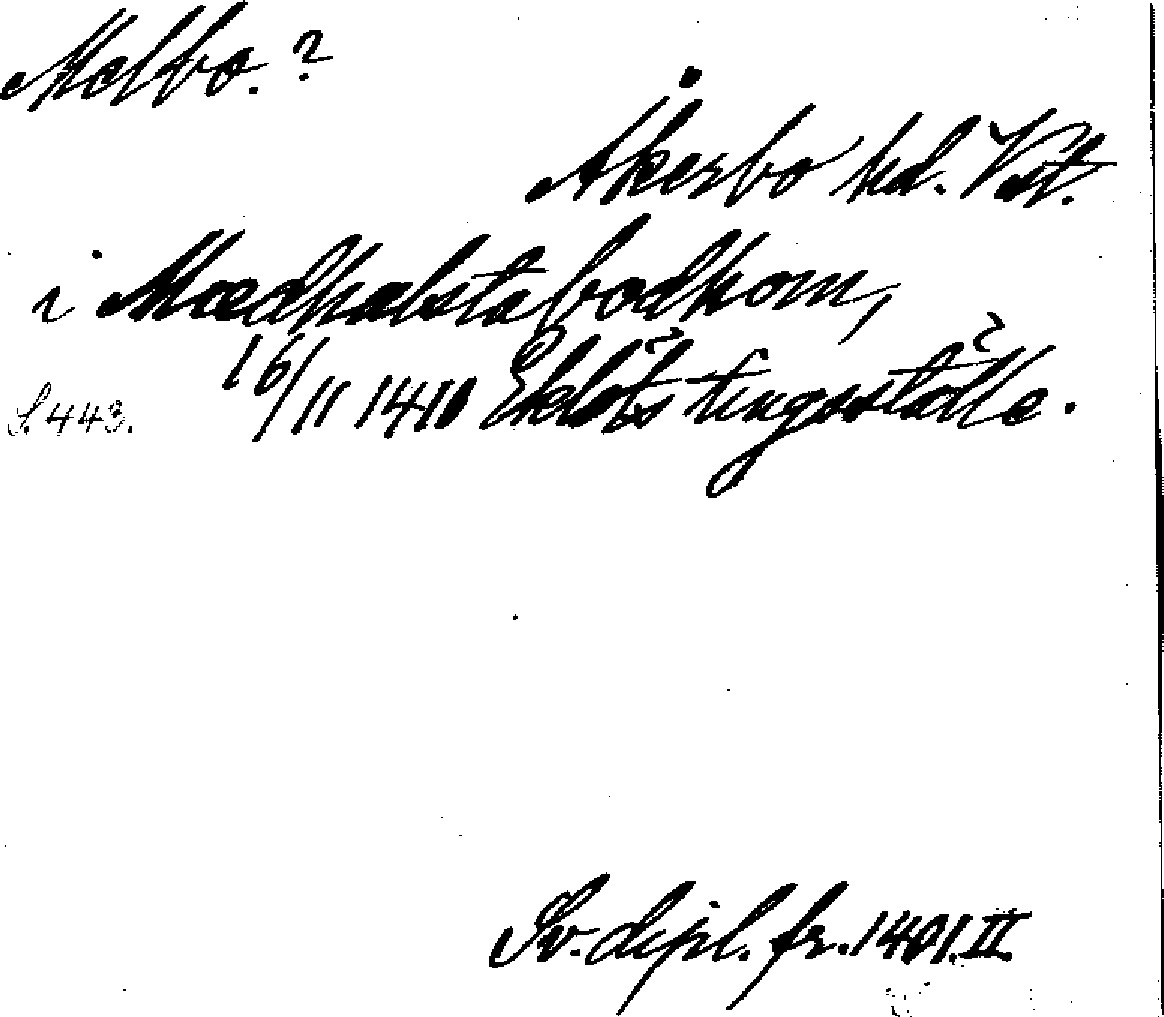 Molbo.?
Åkerbo hd. Vst.
i Mædhalstabodhom,
16/11 1410 Eklöts tingsställe.
S. 443.
Sv. dipl. fr. 1401. II